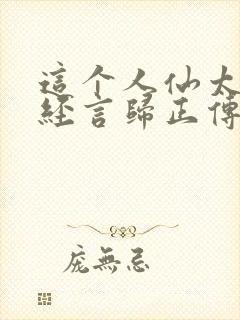 這个人仙太
經言歸正傳
庞無忌